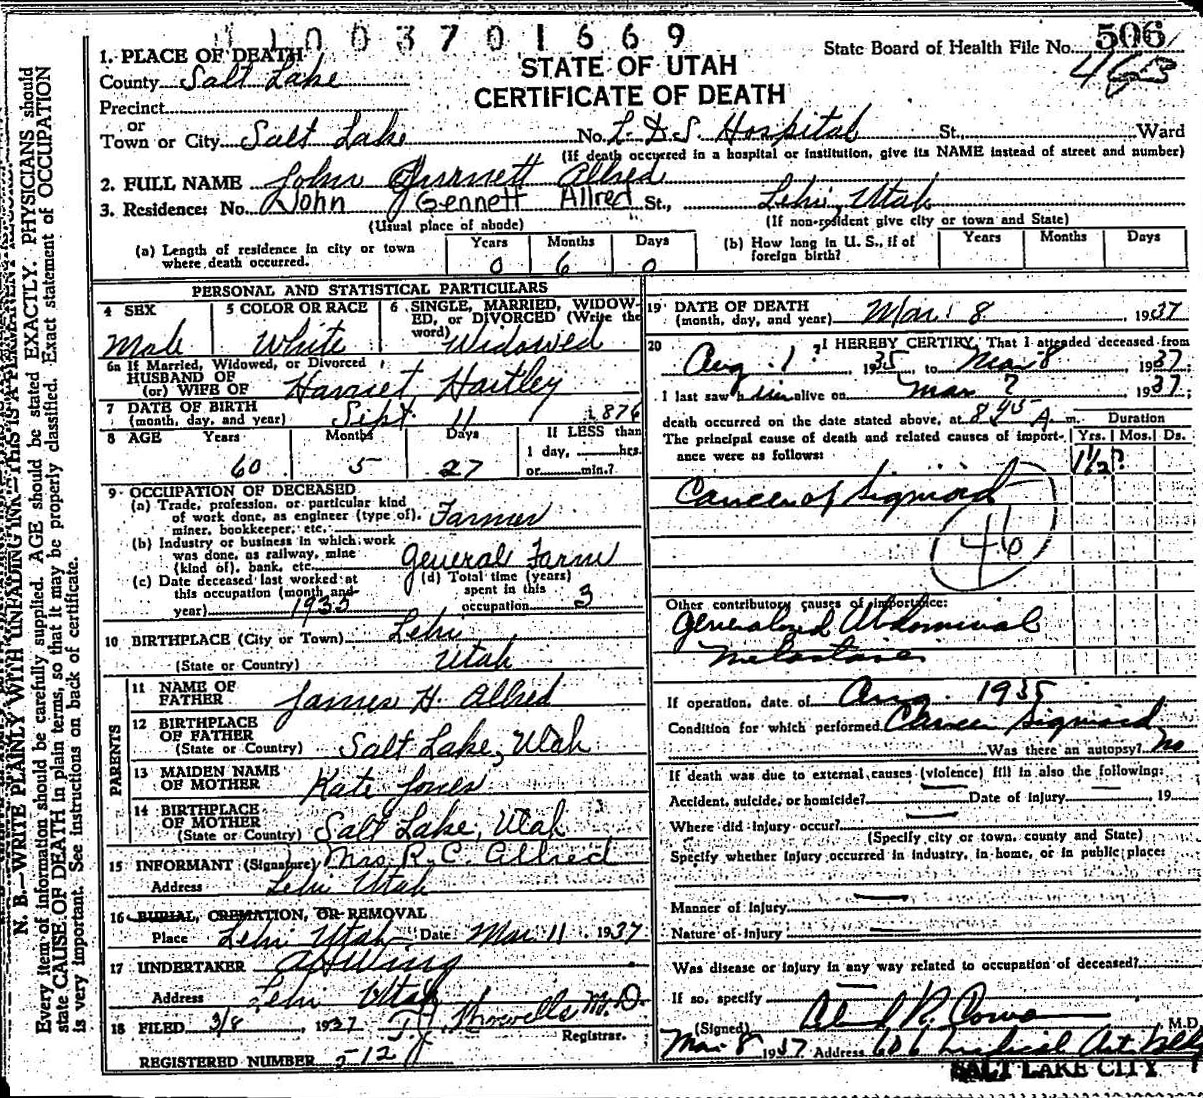 1100370 1669
State Board of Health File No. 506
465
1. PLACE OF DEATH
STATE OF UTAH
CERTIFICATE OF DEATH
County Salt Lake
Precinct
or
Town or City Salt Lake No. L. D. S. Hospital St., Ward
(If death occurred in a hospital or institution, give its NAME instead of street and number)
2. FULL NAME John Allred
3. Residence: No. John Gennett Allred St., Lehi, Utah
(Usual place of abode) (If non-resident give city or town and State)
(a) Length of residence in city or town where death occurred. Years 0 Months 6 Days 0
(b) How long in U. S., if of foreign birth? Years Months Days
PERSONAL AND STATISTICAL PARTICULARS
4 SEX Male
5 COLOR OR RACE White
6 SINGLE, MARRIED, WIDOWED, or DIVORCED (Write the word) Widowed
6a If Married, Widowed, or Divorced
HUSBAND OF
(or) WIFE OF Harriet Hartley
7 DATE OF BIRTH
(month, day, and year) Sept 11 1876
8 AGE Years 60 Months 5 Days 27
If LESS than
1 day, hrs.
or min.?
9 OCCUPATION OF DECEASED
(a) Trade, profession, or particular kind
of work done, as engineer (type of), Farmer
miner, bookkeeper, etc.
(b) Industry or business in which work
was done, as railway, mine
(kind of), bank, etc. General Farm
(c) Date deceased last worked at
this occupation (month and
year) 1935
(d) Total time (years)
spent in this
occupation 3
10 BIRTHPLACE (City or Town) Lehi
(State or Country) Utah
PARENTS
11 NAME OF
FATHER James H. Allred
12 BIRTHPLACE
OF FATHER
(State or Country) Salt Lake, Utah
13 MAIDEN NAME
OF MOTHER Kate Jones
14 BIRTHPLACE
OF MOTHER
(State or Country) Salt Lake, Utah
15 INFORMANT (Signature) Mrs. R. C. Allred
Address Lehi Utah
16 BURIAL, CREMATION, OR REMOVAL
Place Lehi Utah Date Mar. 11 1937
17 UNDERTAKER A H Wing
Address Lehi Utah
18 FILED 3/8, 1937 Howells M. D.
Registrar.
REGISTERED NUMBER 512
19 DATE OF DEATH
(month, day, and year) Mar. 8, 1937
20 I HEREBY CERTIFY, That I attended deceased from
Aug. 1? 1935, to Mar 8 1937
I last saw him alive on Mar 7 1937;
death occurred on the date stated above, at 8 45 A m. Duration
The principal cause of death and related causes of importance were as follows: Yrs. Mos. Ds.
1 1/2?
Cancer of Sigmoid
46
Other contributory causes of importance:
Generalized Abdominal
Metastases
If operation, date of Aug. 1935
Condition for which performed Cancer Sigmoid
Was there an autopsy? No
If death was due to external causes (violence) fill in also the following:
Accident, suicide, or homicide? Date of injury 19
Where did injury occur?
(Specify city or town, county and State)
Specify whether injury occurred in industry, in home, or in public place:
Manner of injury
Nature of injury
Was disease or injury in any way related to occupation of deceased?
If so, specify
(Signed) M.D.
Mar 8 1937 Address 606 Medical Art. Bldg
SALT LAKE CITY
N. B.—WRITE PLAINLY WITH UNFADING INK—THIS IS A PERMANENT RECORD.
Every item of information should be carefully supplied. AGE should be stated EXACTLY. PHYSICIANS should
state CAUSE OF DEATH in plain terms, so that it may be properly classified. Exact statement of OCCUPATION
is very important. See instructions on back of certificate.